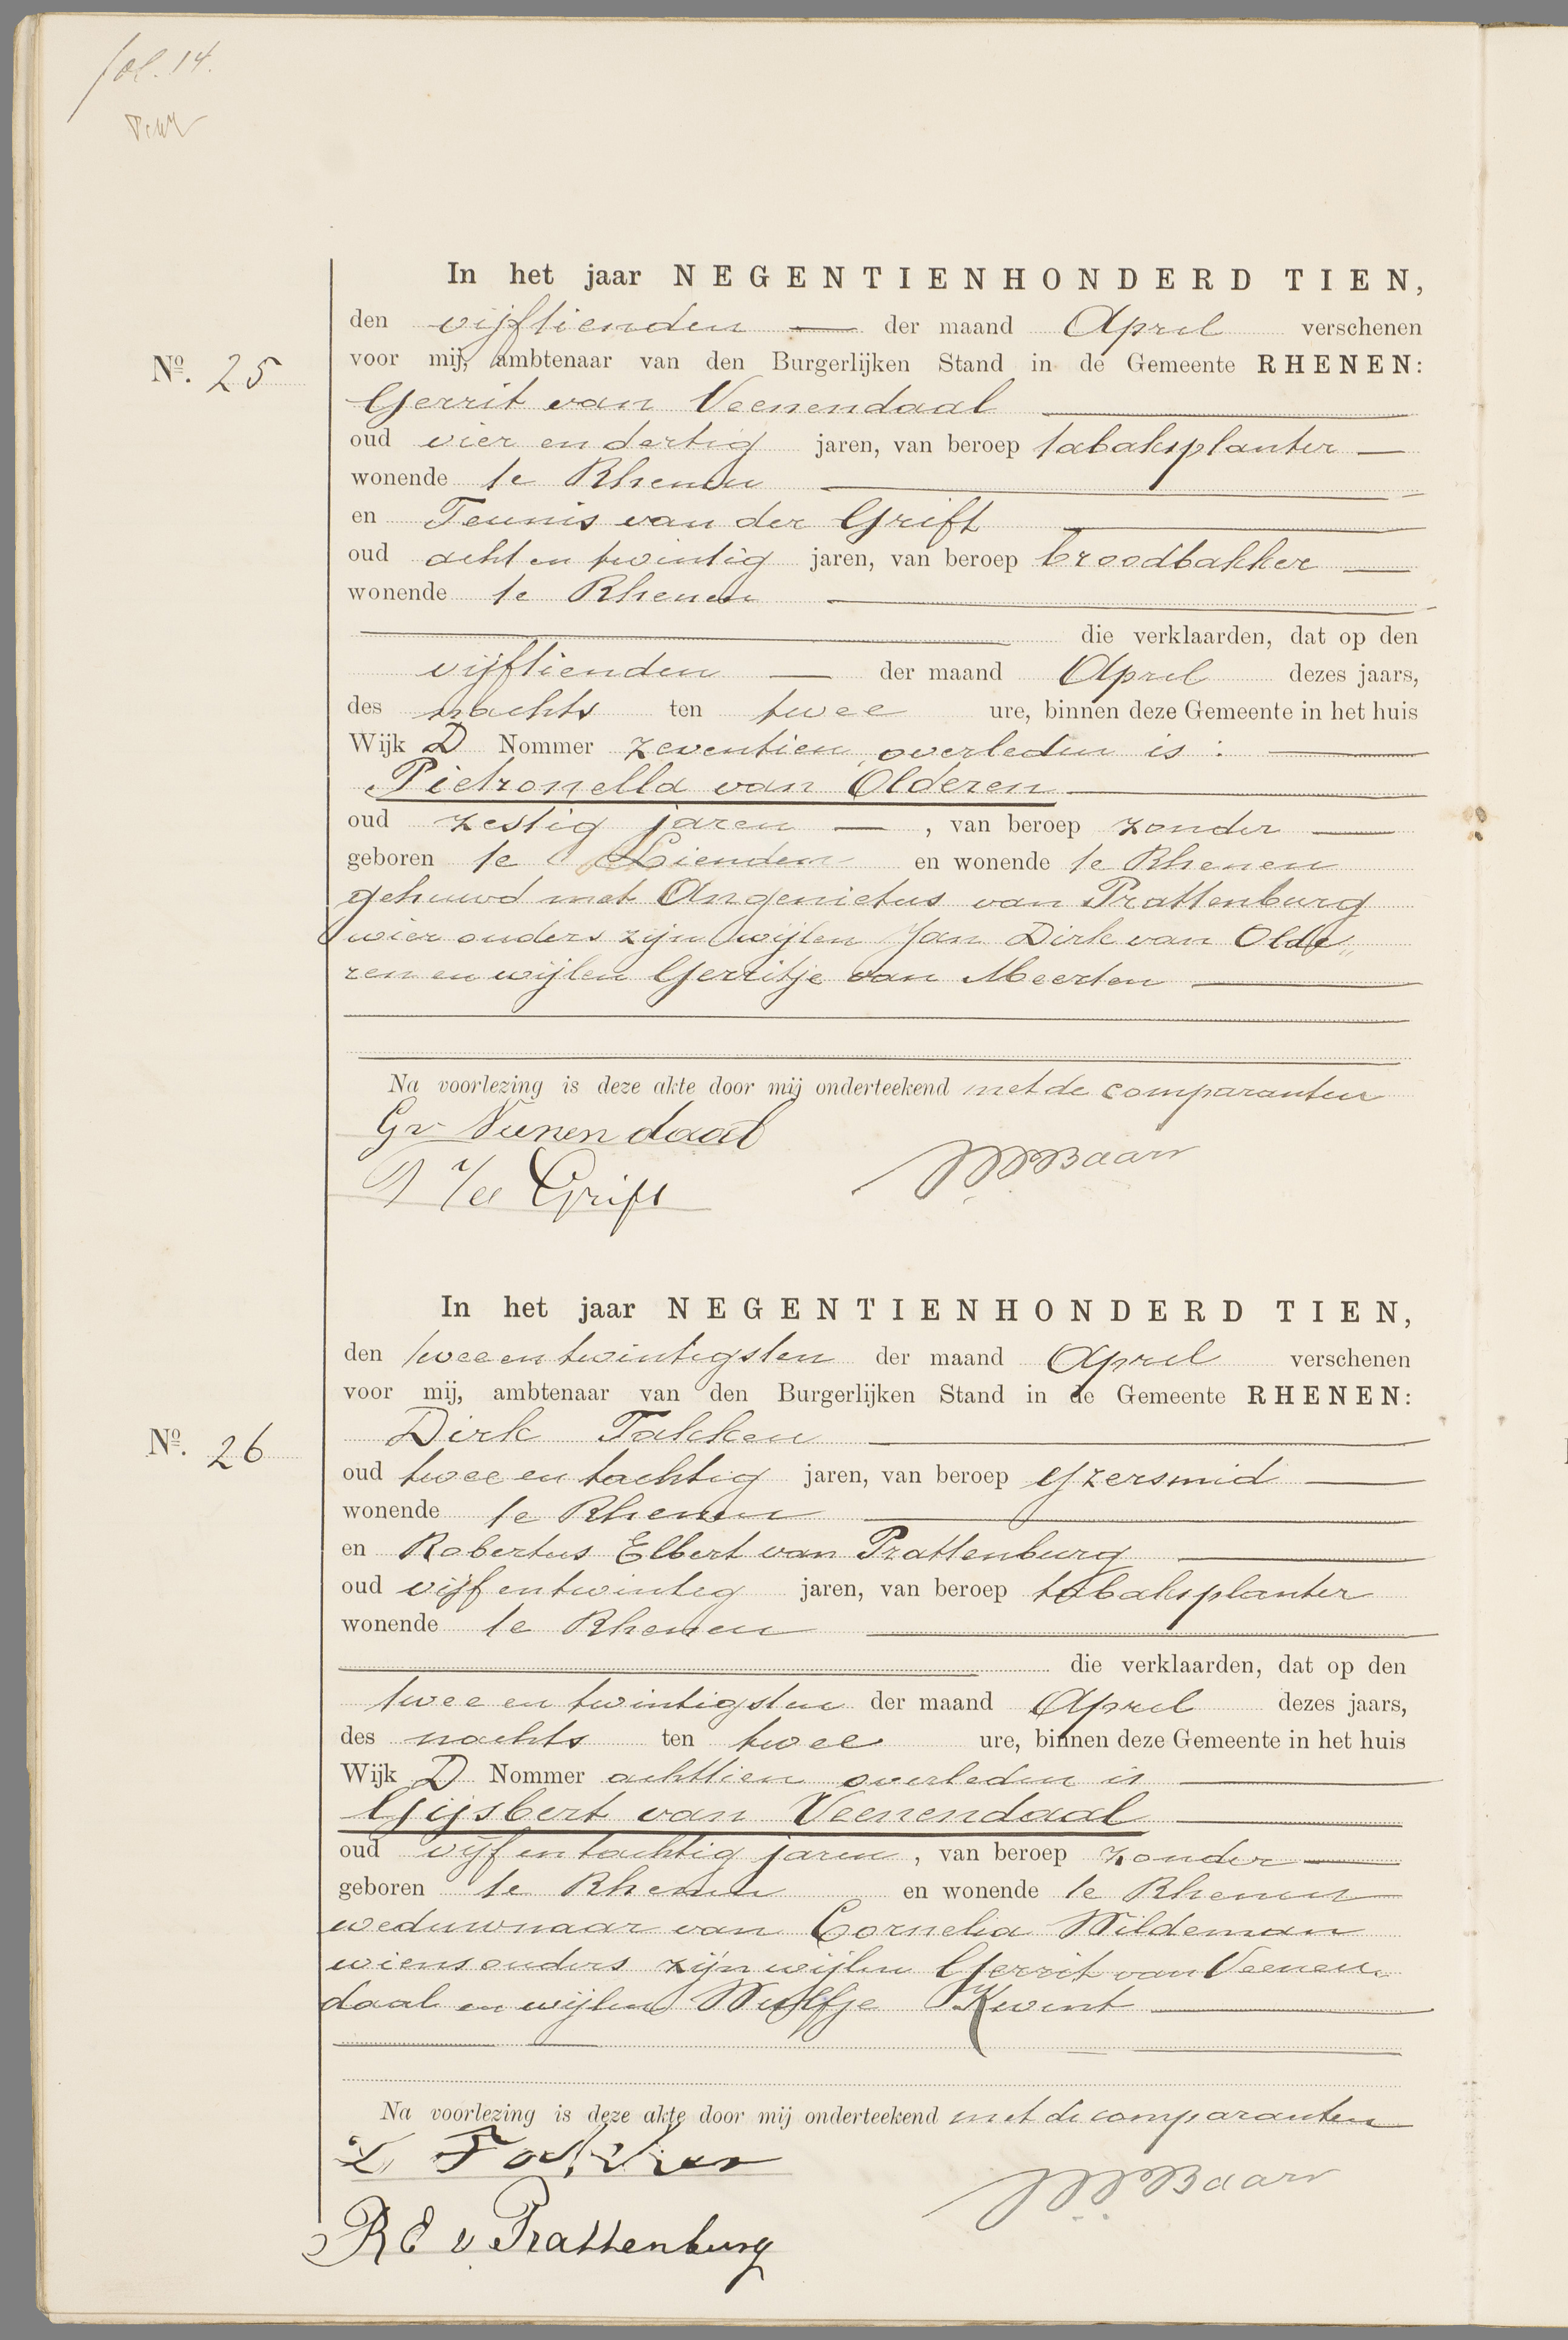 fol. 14.
In het jaar NEGENTIENHONDERD TIEN,
den vijftienden — der maand April verschenen
voor mij, ambtenaar van den Burgerlijken Stand in de Gemeente RHENEN:
Nº. 25
Gerrit van Veenendaal
oud vier en dertig jaren, van beroep tabaksplanter —
wonende te Rhenen
en Teunis van der Grift
oud acht en twintig jaren, van beroep broodbakker —
wonende te Rhenen
die verklaarden, dat op den
vijftienden — der maand April dezes jaars,
des nachts ten twee ure, binnen deze Gemeente in het huis
Wijk D Nommer zeventien overleden is :
Pietronella van Olderen
oud zestig jaren — , van beroep zonder —
geboren te Lienden en wonende te Rhenen
gehuwd met Angenietus van Prattenburg
wier ouders zijn wijlen Jan Dirk van Olde„
ren en wijlen Gerritje van Meerten
Na voorlezing is deze akte door mij onderteekend met de comparanten
Gv Veenendaal
vd Grift
Baars
In het jaar NEGENTIENHONDERD TIEN,
den tweeentwintigsten der maand April verschenen
voor mij, ambtenaar van den Burgerlijken Stand in de Gemeente RHENEN:
Nº. 26
Dirk Takken
oud twee en tachtig jaren, van beroep ijzersmid
wonende te Rhenen
en Robertus Elbert van Prattenburg
oud vijf entwintig jaren, van beroep tabaksplanter
wonende te Rhenen
die verklaarden, dat op den
twee en twintigsten der maand April dezes jaars,
des nachts ten twee ure, binnen deze Gemeente in het huis
Wijk D Nommer achttien overleden is
Gijsbert van Veenendaal
oud vijf en tachtig jaren , van beroep zonder —
geboren te Rhenen en wonende te Rhenen
weduwnaar van Cornelia Wildeman
wiens ouders zijn wijlen Gerrit van Veenen„
daal en wijlen Wulfje Kwint
Na voorlezing is deze akte door mij onderteekend met de comparanten
Baars
R E v Prattenburg